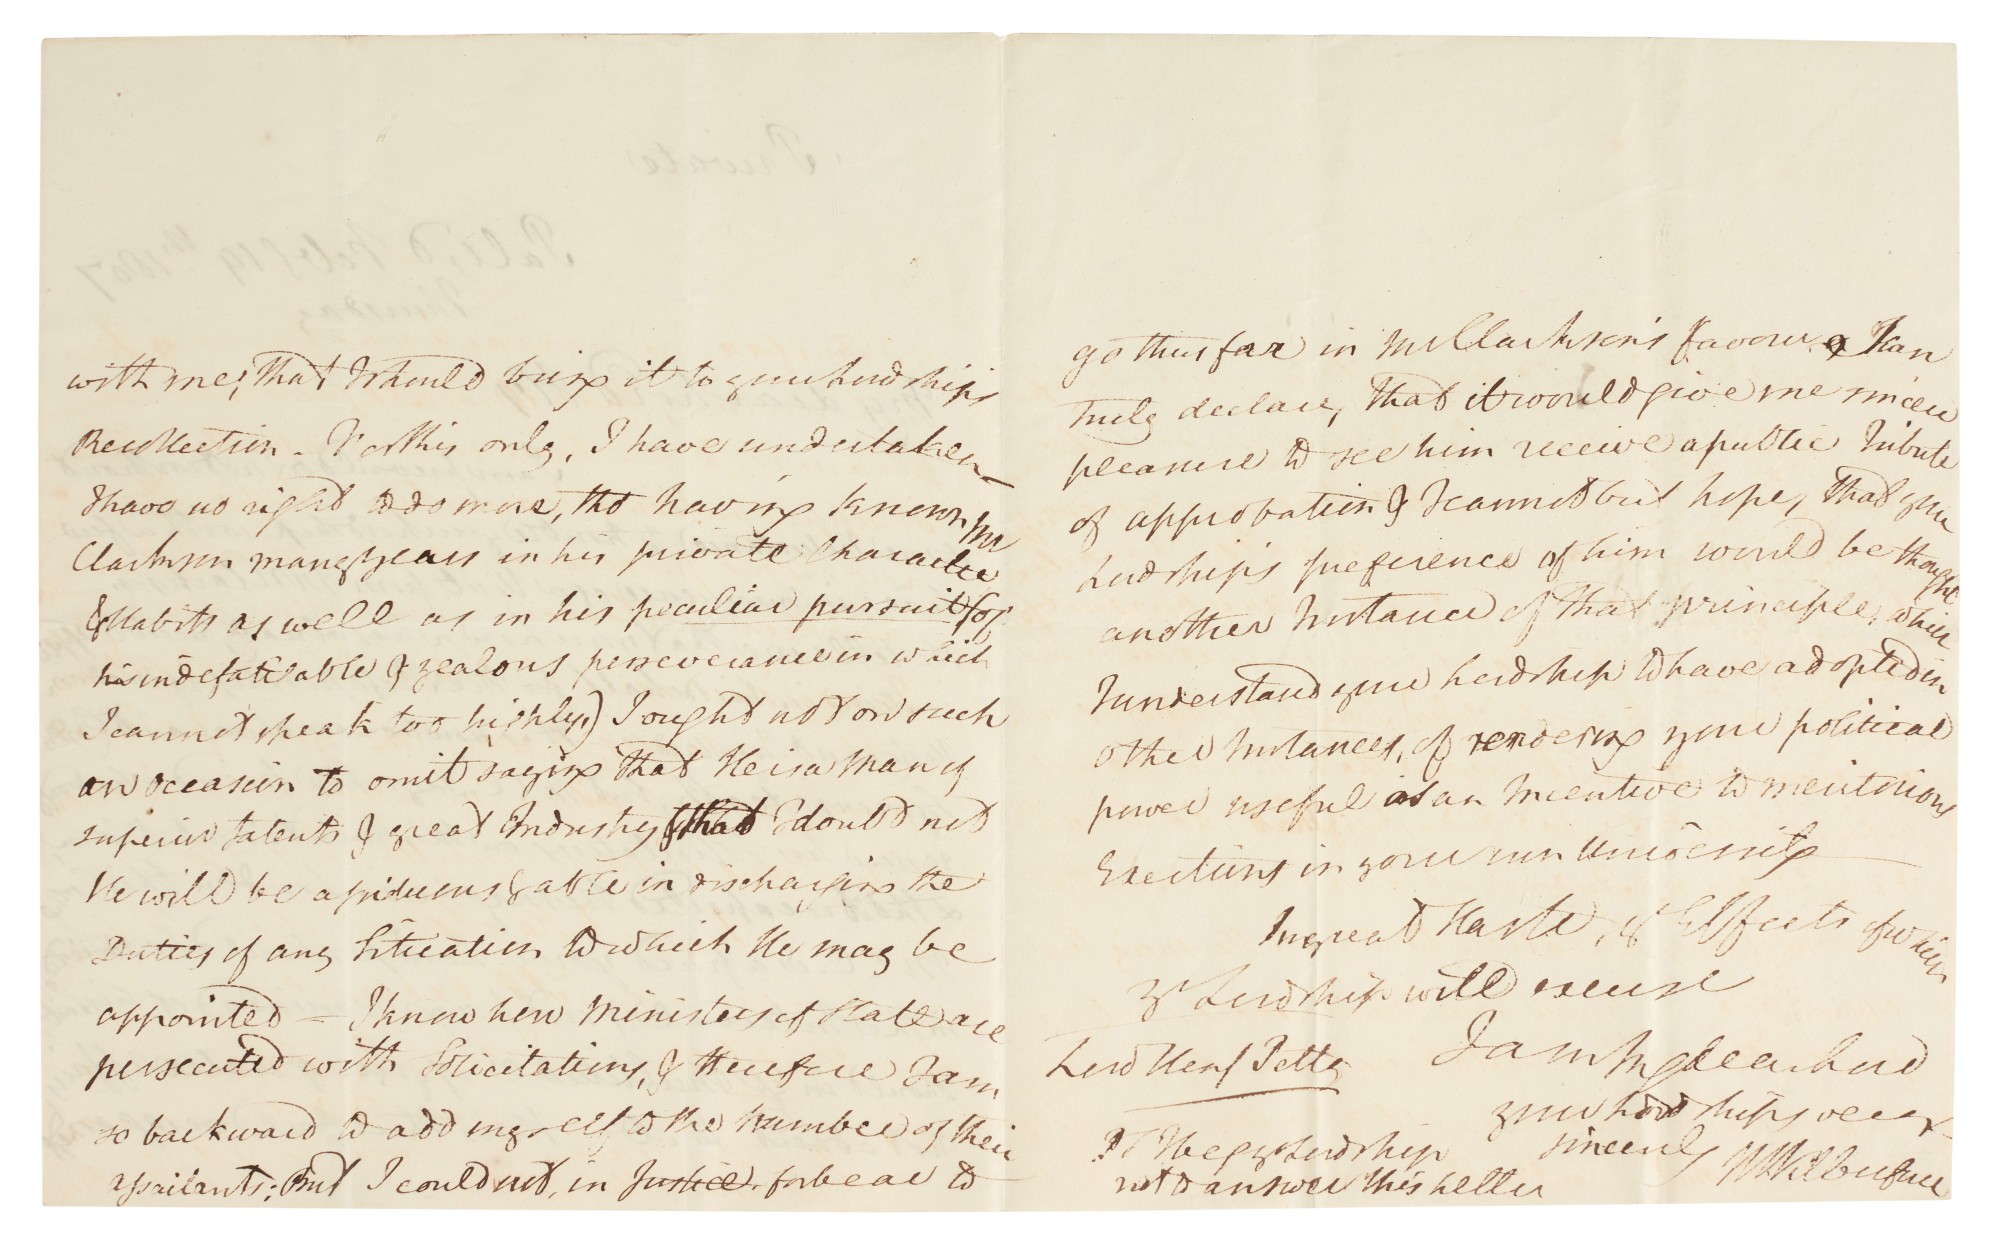 with me, that I should bring it to your Lordship's
Recollection. For this only, I have undertaken
I have no right to do more, tho' having known Mr
Clarkson many years in his private Character
& Habits as well as in his peculiar pursuit (of
his indefatigable & zealous perseverance in which
I cannot speak too highly,) I ought not on such
an occasion to omit saying that He is a Man of
superior talents & great Industry & that I doubt not
He will be assiduous & able in discharging the
Duties of any Situation to which He may be
appointed — I know how Ministers of State are
persecuted with Solicitations, & therefore I am
so backward to add myself to the Number of their
assailants; But I could not, in Justice, forbear to
go thus far in Mr Clarkson's favour & I can
truly declare, that it would give me sincere
pleasure to see him receive a public Tribute
of approbation & I cannot but hope, that your
Lordship's preference of him would be thought
another Instance of that principle, which
I understand your Lordship to have adopted in
other Instances, of rendering your political
power useful as an Incentive to meritorious
Exertions in your own University —
In great Haste, ye Effects of which
yr Lordship will excuse
I am My dear Lord
your Lordships very
sincerely
W Wilberforce
Lord Heny Petty
I beg yr Lordship
not to answer this Letter
Private
Pal: Yd Feby 19th 1807
Thursday